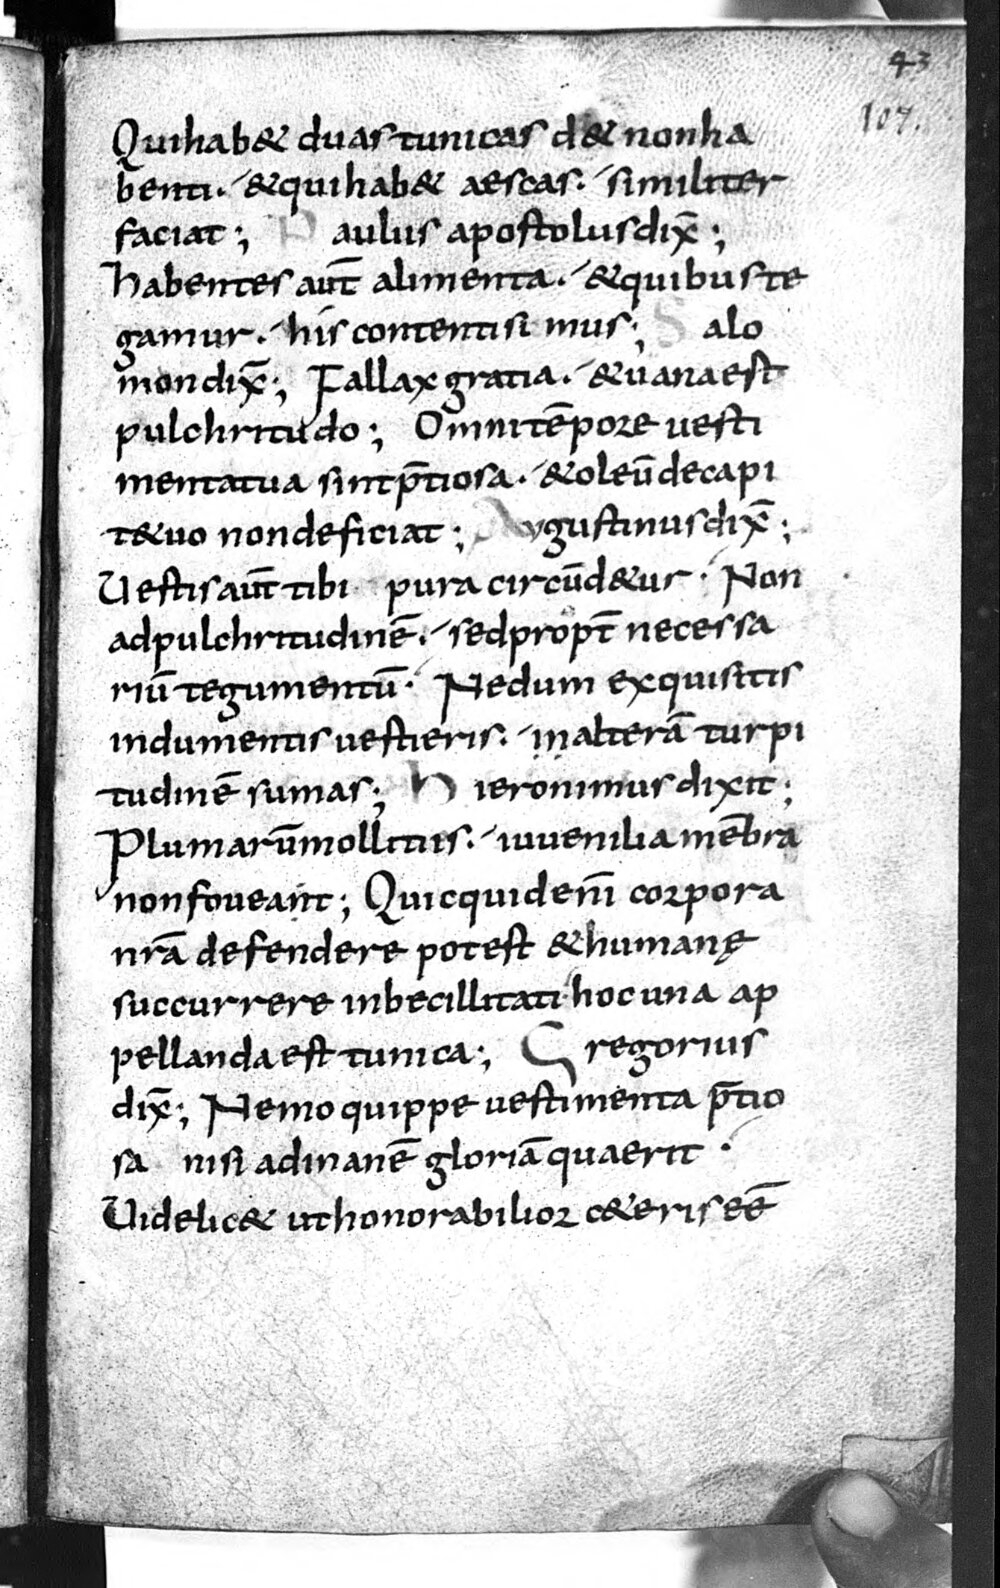 43
107.
Quihab& duas tunicas d& nonha
benti. &quihab& aescas. similiter
faciat; Paulus apostolus dix̄;
habentes aut̄ alimenta. &quibus te
gamur. his contenti simus; Salo
mon dix̄; Fallax gratia. &uana est
pulchritudo; Omni tēpore uesti
menta tua sint p̄tiosa. &oleū decapi
t&uo non deficiat; Augustinus dix̄;
Uestis aut̄ tibi pura circūd&ur. Non
ad pulchritudinē. sed propt̄ necessa
riū tegumentū. Ne dum exquisitis
indumentis uestieris. in alterā turpi
tudinē sumas; Hieronimus dixit;
Plumarū mollitiis. iuuenilia mēbra
non foueant; Quicquid eni̅ corpora
nr̄a defendere potest &humanę
succurrere inbecillitati hoc una ap
pellanda est tunica; Gregorius
dix̄; Nemo quippe uestimenta p̄tio
sa nisi ad inanē gloriā quaerit.
Uidelic& ut honorabilior c&eris eē̄